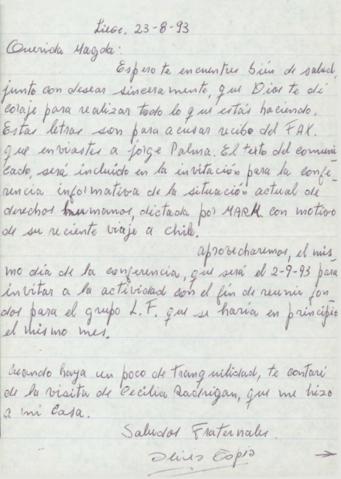 Liege, 23-8-93
Querida Magda:
Espero te encuentres bién de salud,
junto con desear sinceramente, que Dios te dé
coraje para realizar todo lo que estás haciendo.
Estas letras son para acusar recibo del FAX.
que enviastes a Jorge Palma. El texto del comuni
cado, será incluído en la invitación para la confe-
rencia informativa de la situación actual de
derechos humanos, dictada por MARM con motivo
de su reciente viaje a Chile.
Aprovecharemos, el mis
mo día de la conferencia, que será el 2-9-93 para
invitar a la actividad con el fin de reunir fon
dos para el grupo L.F. que se haría en principio
el mismo mes.
Cuando haya un poco de tranquilidad, te contaré
de la visita de Cecilia Radrigan, que me hizo
a mi casa.
Saludos Fraternales.